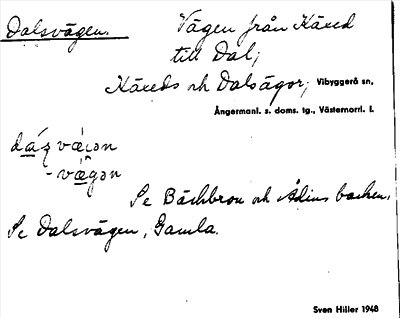 Dalsvägen. Vägen från Käxed
till Dal;
Käxeds och Dalsägor; Vibyggerå sn,
Ångermanl. s. doms. tg., Västernorrl. l.
Se Bäckbron och Ådins backen,
Se Dalsvägen, Gamla.
Sven Hiller 1948